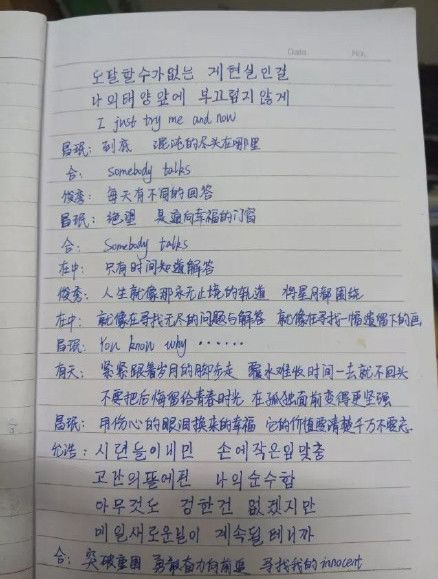 Date. No.
오달할수가없는 게현실인걸
나의태양앞에 부끄럽지않게
I just try me and now
昌珉: 到底 混沌的尽头在哪里
合: Somebody talks
俊秀: 每天有不同的回答
昌珉: 绝望 是通向幸福的门窗
合: Somebody talks
在中: 只有时间知道解答
俊秀: 人生就像那永无止境的轨道 将星月都围绕
在中: 就像在寻找无尽的问题与解答 就像在寻找一幅遗留下的画
昌珉: You know why ······
有天: 紧紧跟着岁月的脚步走 覆水难收时间一去就不回头
不要把后悔留给青春时光 在孤独面前变得更坚强
昌珉: 用伤心的眼泪换来的幸福 它的价值要清楚千万不要忘
允浩: 시련들이내민 손에작은입맞춤
고난의뜰에핀 나의순수함
아무것도 정한건 없겠지만
매일새로운날이 계속될테니까
合: 突破重围 勇敢奋力向前 寻找我的 innocent